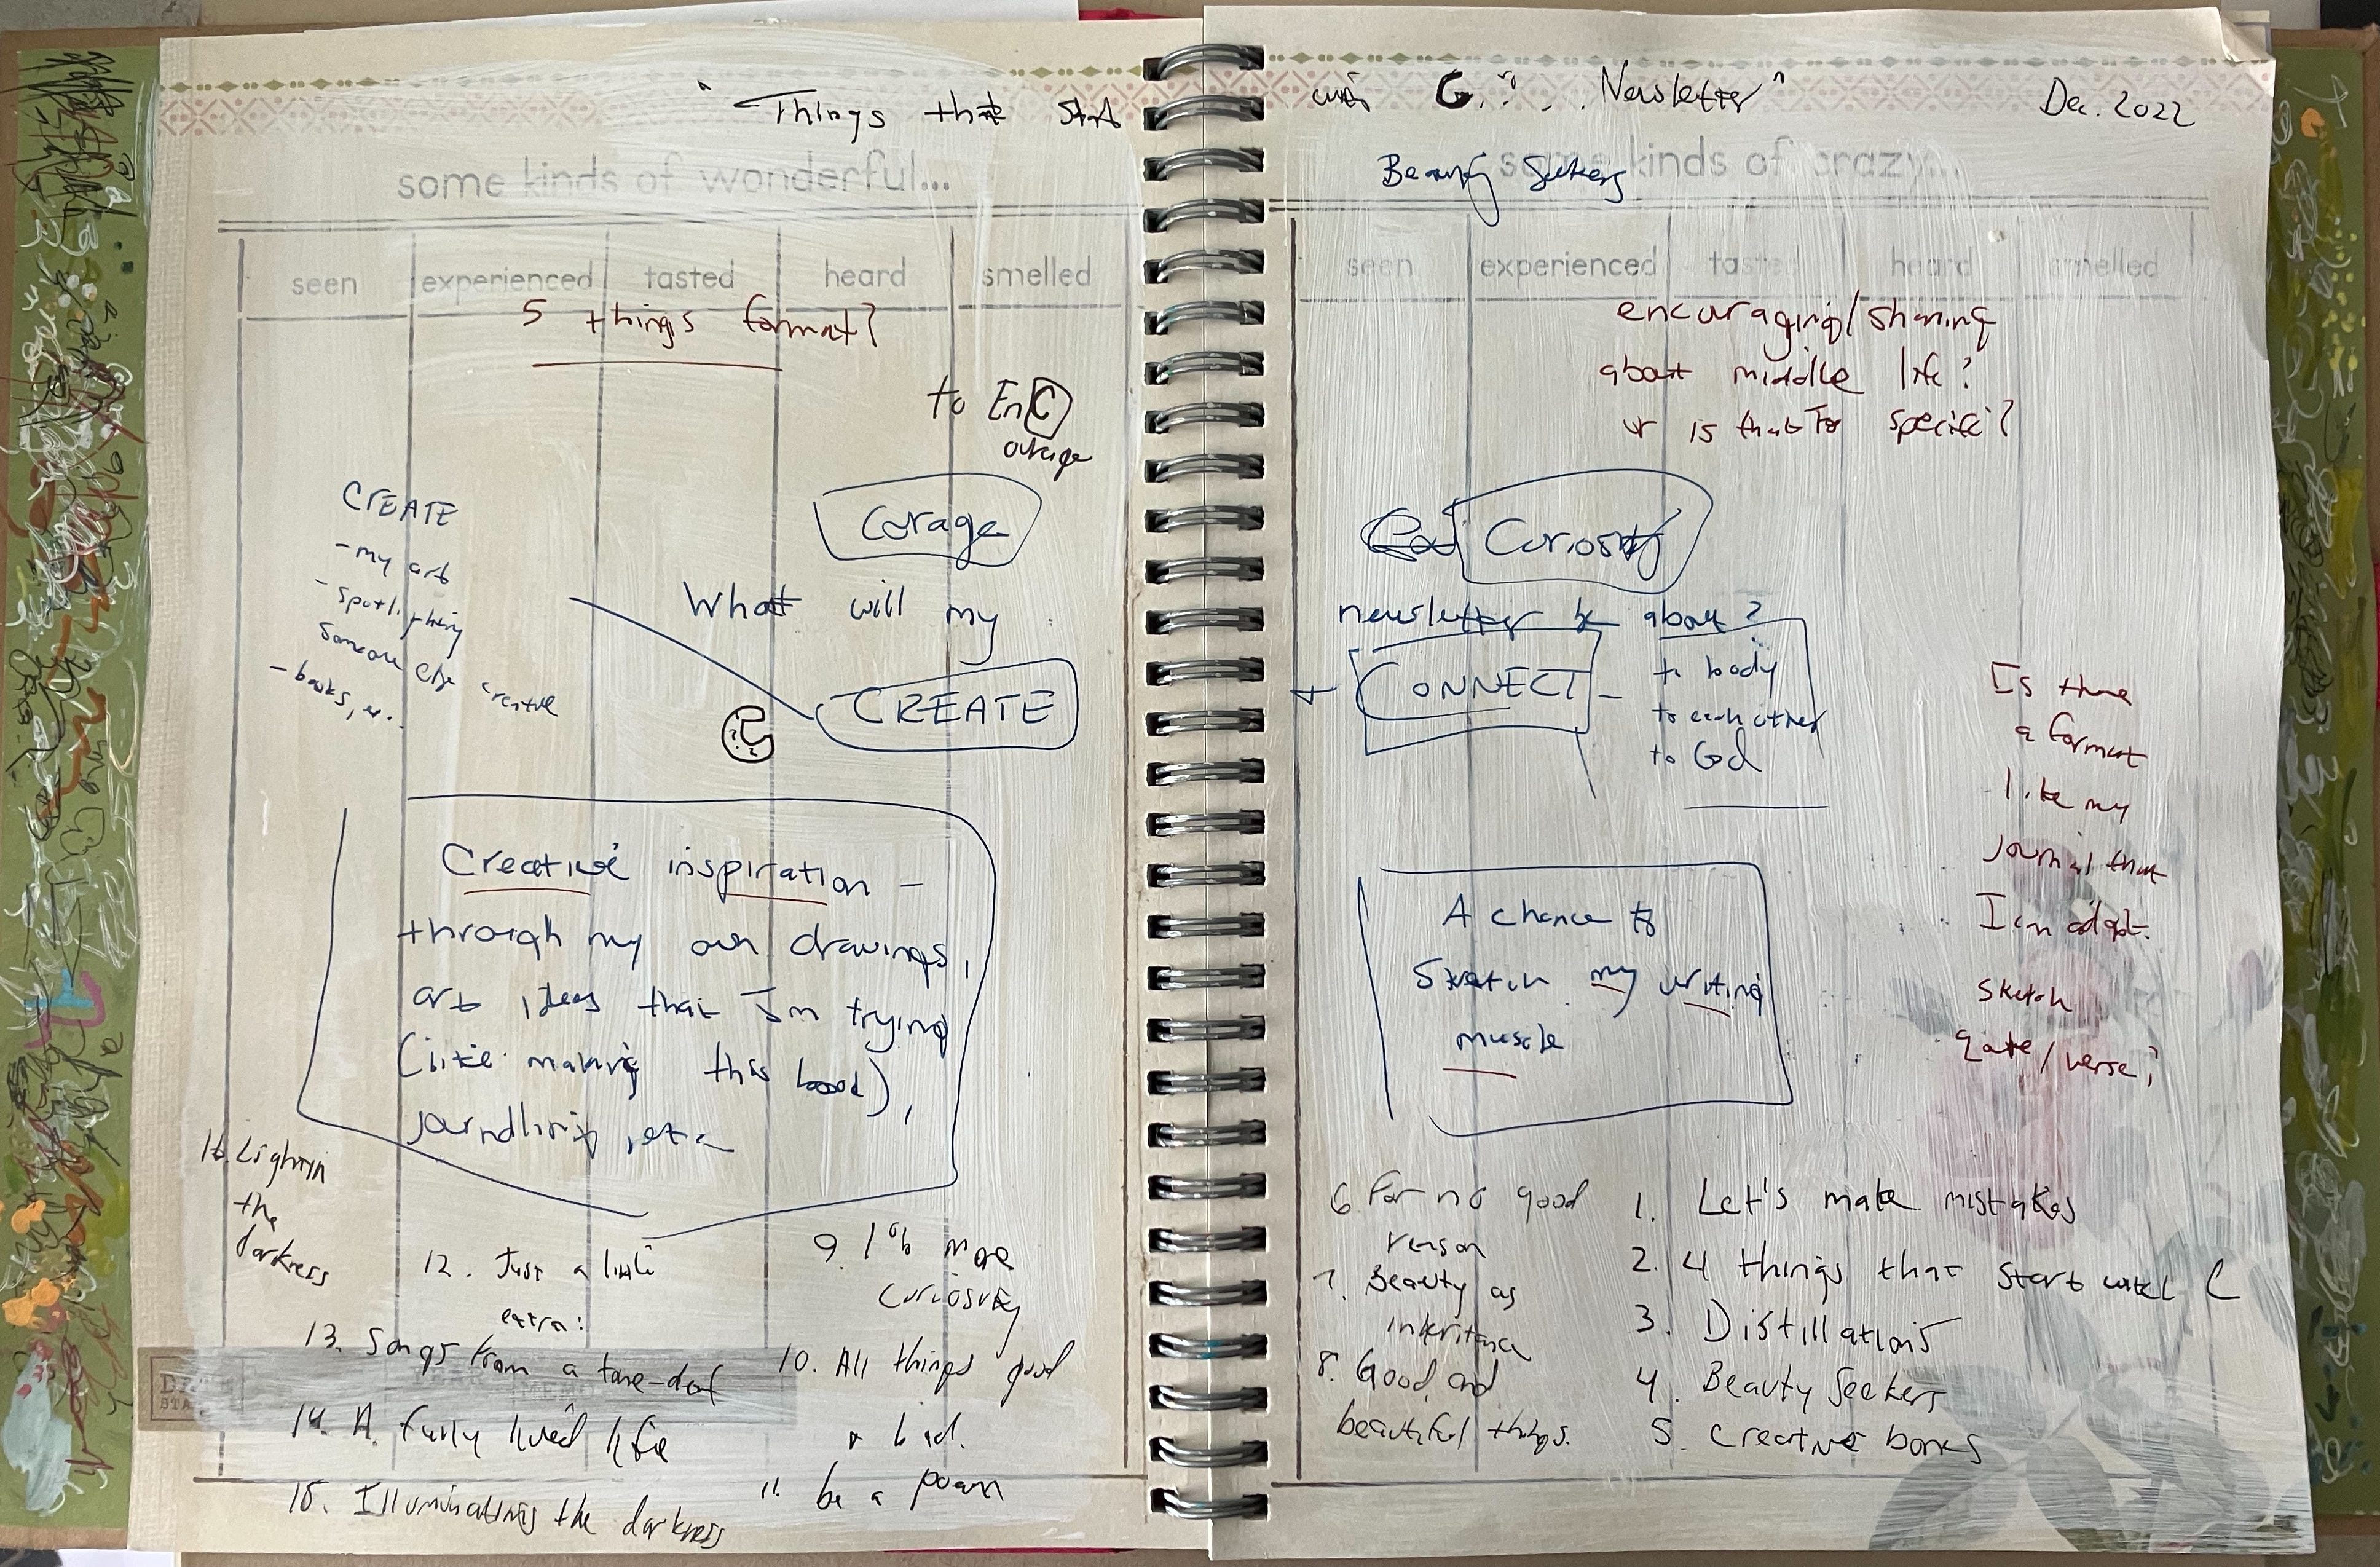 "Things that start with C... Newsletter"
Dec. 2022
some kinds of wonderful...
seen experienced tasted heard smelled
5 things format?
to EnCourage
CREATE
- my art
- spotlighting
someone else creative
- books,
Corage
What will my
CREATE
C
Creative inspiration -
through my own drawings,
art ideas that I'm trying
(like making this book),
journaling, etc
16. Light in
the
darkness
12. Just a little
extra!
13. Songs from a tone-deaf
14. A fully lived life
15. Illuminating the darkness
9. 1% more
curiosity
10. All things good
+ bad.
11. be a poem
Beauty Seekers
some kinds of crazy...
seen experienced tasted heard smelled
encouraging/sharing
about middle life?
or is that too specific?
Curiosity
newsletter be about?
+ CONNECT -
to body
to each other
to God
Is there
a format
like my
journal that
I can adapt.
sketch
quote/verse?
A chance to
Stretch my writing
muscle
6. For no good
reason
7. Beauty as
inheritance
8. Good and
beautiful things.
1. Let's make mistakes
2. 4 things that start with C
3. Distillations
4. Beauty Seekers
5. Creative bones